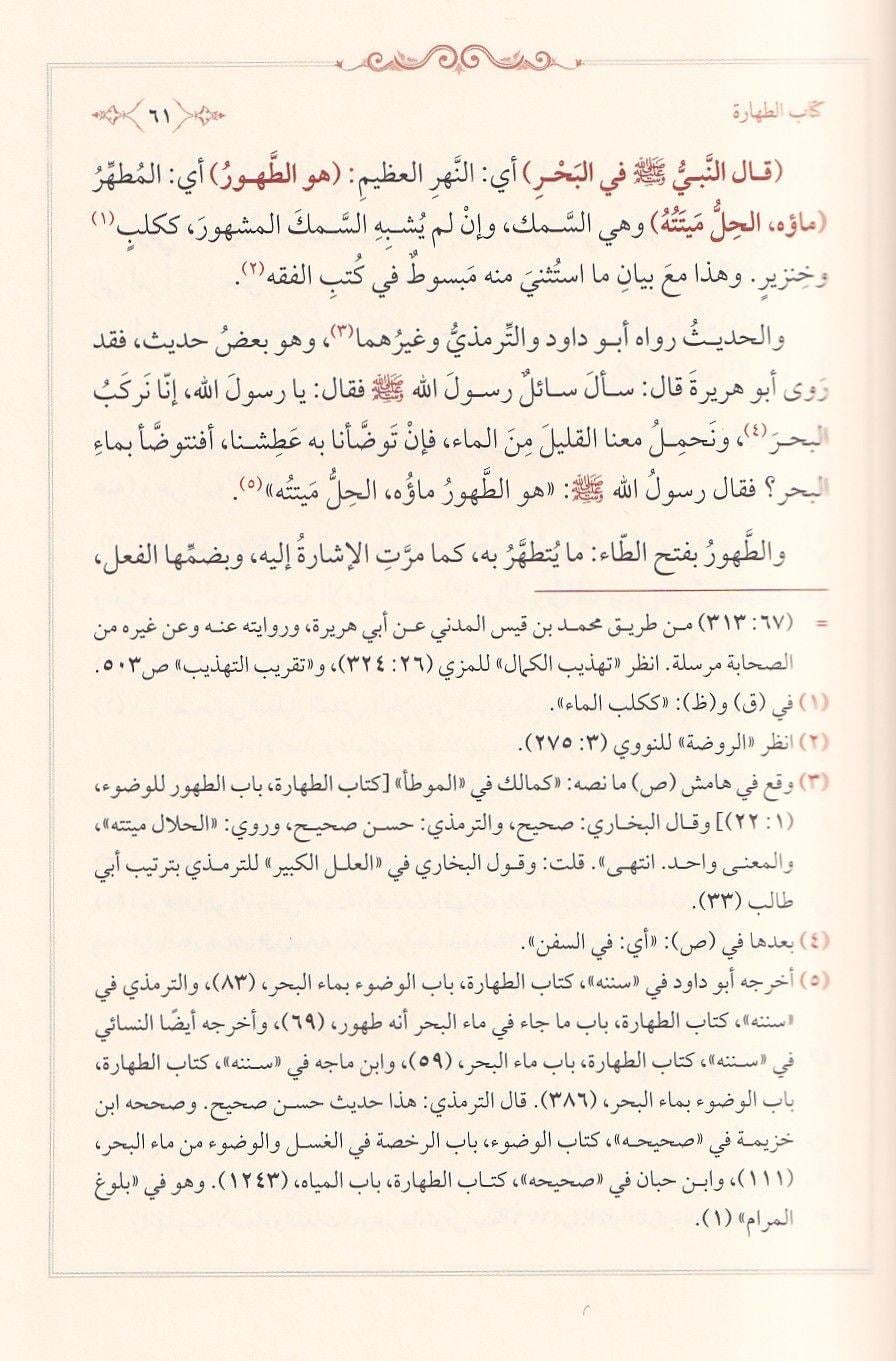 كتاب الطهارة
٦١
(قال النَّبيُّ ﷺ في البَحْرِ) أي: النَّهرِ العظيمِ: (هو الطَّهورُ) أي: المُطهِّرُ
(ماؤه، الحِلُّ مَيتَتُهُ) وهي السَّمك، وإنْ لم يُشبِهِ السَّمكَ المشهورَ، ككلبٍ(١)
وخِنزيرٍ. وهذا معَ بيانِ ما استُثنيَ منه مَبسوطٌ في كُتبِ الفقه(٢).
والحديثُ رواه أبو داود والتِّرمذيُّ وغيرُهما(٣)، وهو بعضُ حديث، فقد
رَوى أبو هريرةَ قال: سألَ سائلٌ رسولَ الله ﷺ فقال: يا رسولَ الله، إنّا نَركَبُ
البحرَ(٤)، ونَحمِلُ معنا القليلَ مِنَ الماء، فإنْ تَوضَّأنا به عَطِشنا، أفنتوضَّأ بماءِ
البحر؟ فقال رسولُ الله ﷺ: «هو الطَّهورُ ماؤُه، الحِلُّ مَيتتُه»(٥).
والطَّهورُ بفتح الطّاء: ما يُتطهَّرُ به، كما مرَّتِ الإشارةُ إليه، وبضمِّها الفعل،
= (٦٧: ٣١٣) من طريق محمد بن قيس المدني عن أبي هريرة، وروايته عنه وعن غيره من
الصحابة مرسلة. انظر «تهذيب الكمال» للمزي (٢٦: ٣٢٤)، و«تقريب التهذيب» ص٥٠٣.
(١) في (ق) و(ظ): «ككلب الماء».
(٢) انظر «الروضة» للنووي (٣: ٢٧٥).
(٣) وقع في هامش (ص) ما نصه: «كمالك في «الموطأ» [كتاب الطهارة، باب الطهور للوضوء،
(١: ٢٢)] وقال البخاري: صحيح، والترمذي: حسن صحيح، وروي: «الحلال ميتته»،
والمعنى واحد. انتهى». قلت: وقول البخاري في «العلل الكبير» للترمذي بترتيب أبي
طالب (٣٣).
(٤) بعدها في (ص): «أي: في السفن».
(٥) أخرجه أبو داود في «سننه»، كتاب الطهارة، باب الوضوء بماء البحر، (٨٣)، والترمذي في
«سننه»، كتاب الطهارة، باب ما جاء في ماء البحر أنه طهور، (٦٩)، وأخرجه أيضًا النسائي
في «سننه»، كتاب الطهارة، باب ماء البحر، (٥٩)، وابن ماجه في «سننه»، كتاب الطهارة،
باب الوضوء بماء البحر، (٣٨٦). قال الترمذي: هذا حديث حسن صحيح. وصححه ابن
خزيمة في «صحيحه»، كتاب الوضوء، باب الرخصة في الغسل والوضوء من ماء البحر،
(١١١)، وابن حبان في «صحيحه»، كتاب الطهارة، باب المياه، (١٢٤٣). وهو في «بلوغ
المرام» (١).